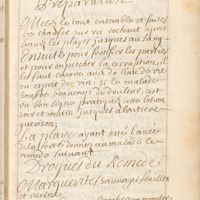 Preparation
Mettez le tout ensemble et faites
le chauffer sur un rechaut apres
lavez les playes jusques au sang
Ensuitte pour fortifier les parties
et pour empescher la corruption, il
les faut etuver avec de l'eau de vie
ou esprit de vin: si le malade
souffre beaucoup de douleur, et
va bien signe pratiquez cette lotion
soir et matin jusques à l'entiere
guerison.
La playe ayant esté lavée
de la sorte donnez au malade le
remede suivant
Drogues du Remede
Marguerites sauvages feuilles
et racine